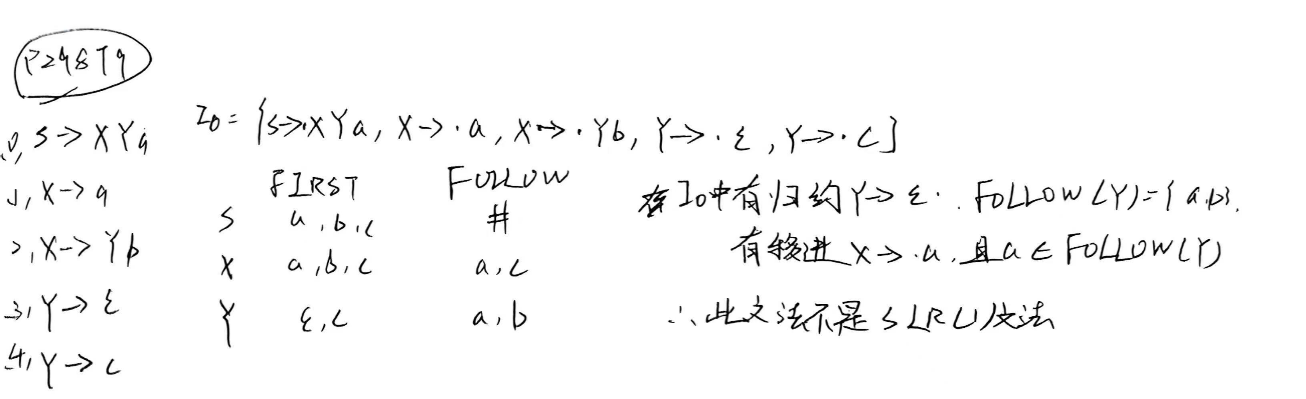 P298T9
0, S→XYa
I₀= {S→·XYa, X→·a, X→·Yb, Y→·ε, Y→·c}
1, X→a
2, X→Yb
3, Y→ε
4, Y→c
FIRST FOLLOW
S a,b,c #
X a,b,c a,c
Y ε,c a,b
在I₀中有归约Y→ε·. FOLLOW(Y)={a,b}.
有移进X→·a.且a∈FOLLOW(Y)
∴此文法不是SLR(1)文法